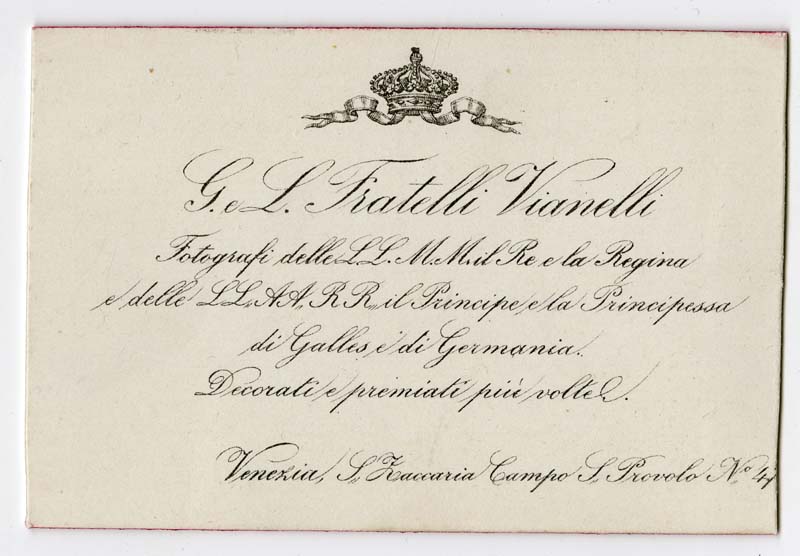 G. e L. Fratelli Vianelli
Fotografi delle LL. M.M. il Re e la Regina
e delle LL. AA. RR. il Principe e la Principessa
di Galles e di Germania.
Decorati e premiati più volte.
Venezia, S. Zaccaria Campo S. Provolo No.